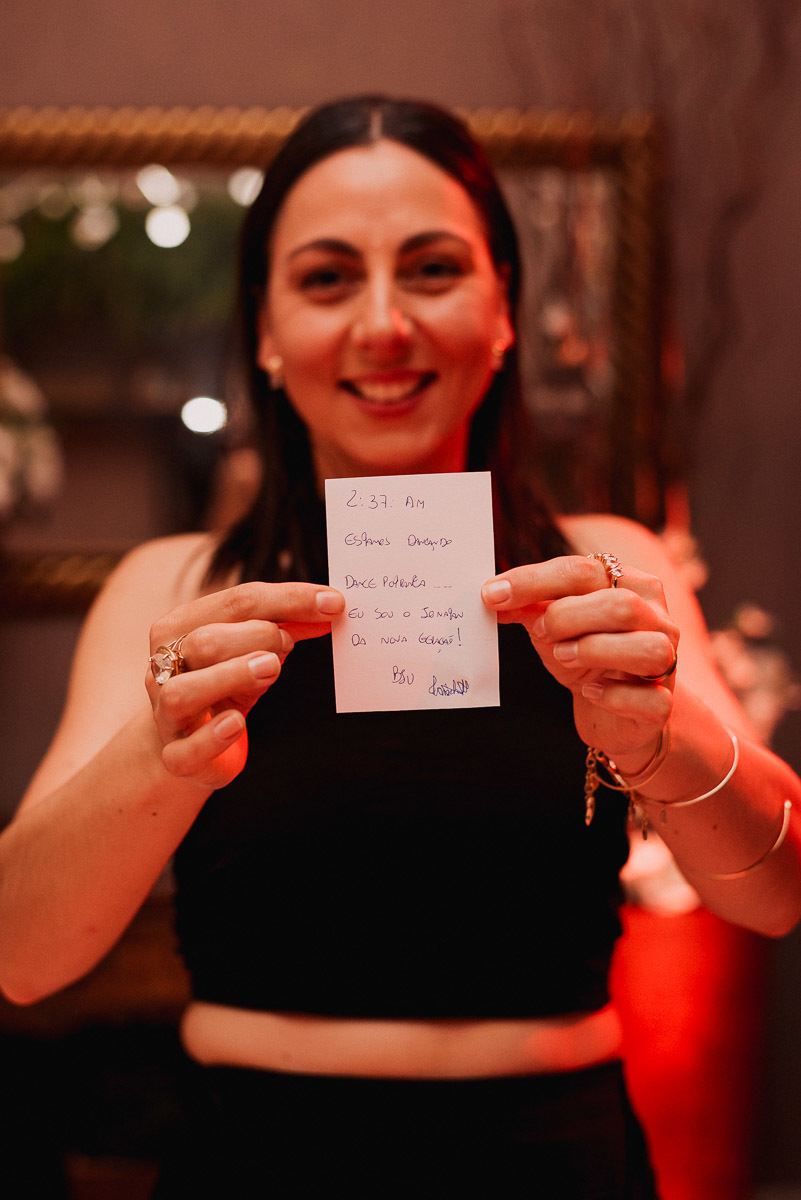 2:37: AM
ESTAMOS DANÇANDO
DANCE POTRANCA ...
EU SOU O JONATAN
DA NOVA GERAÇÃO!